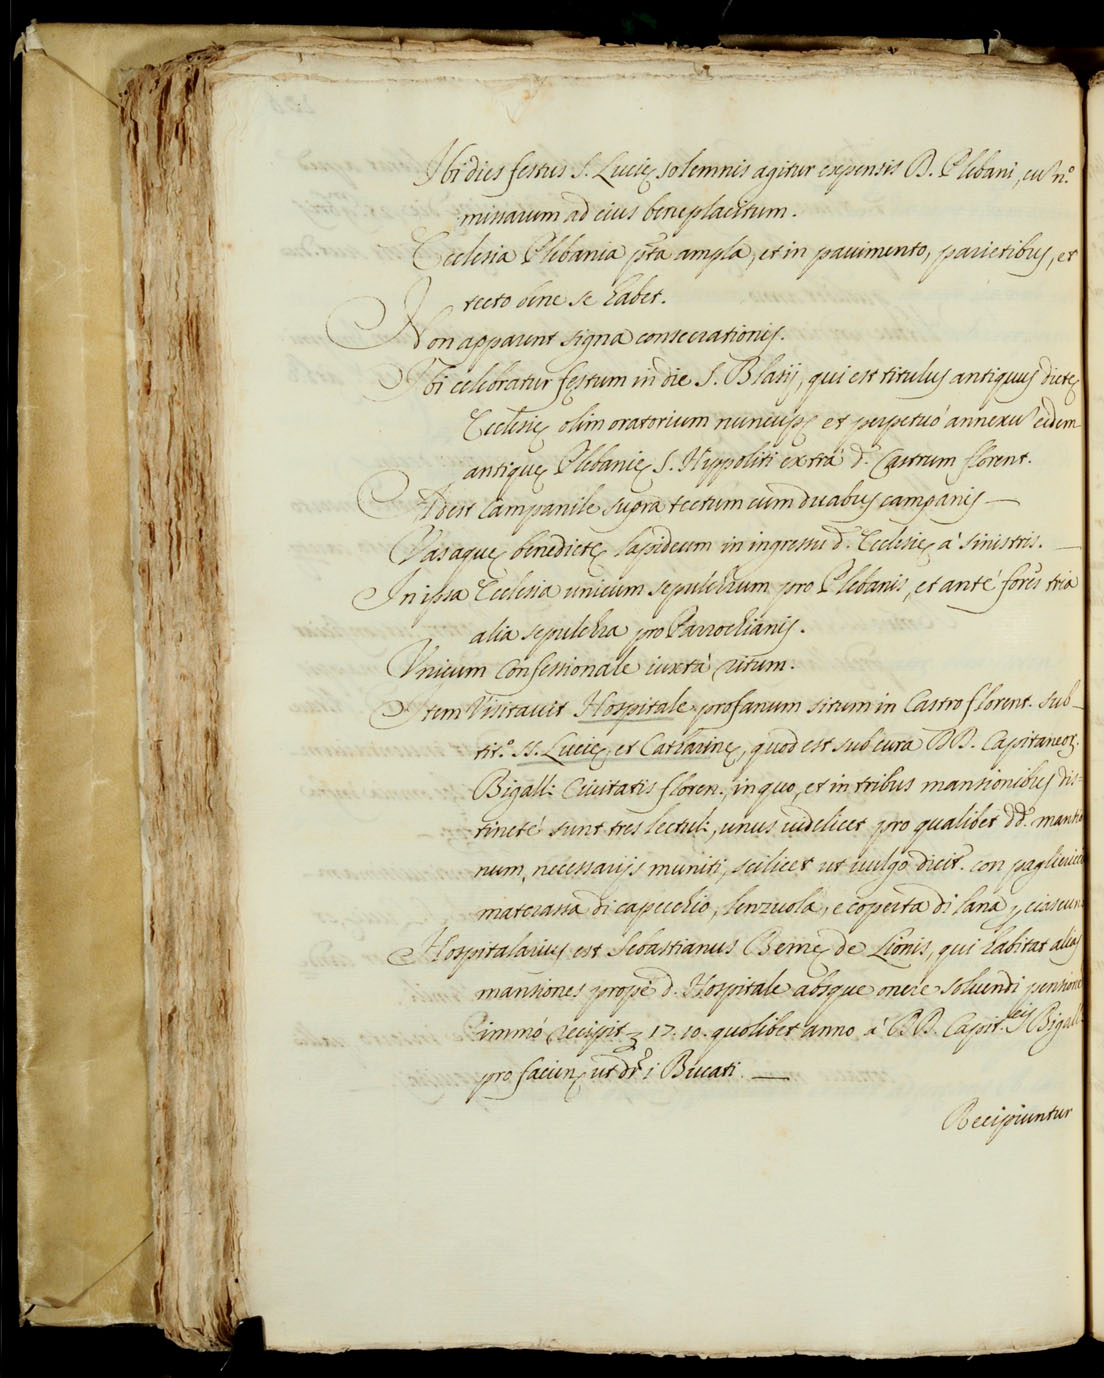 Ibi dies festus S. Lucię solemnis agitur expensis D. Plebani, cũ n.º
missarum ad eius beneplacitum.
Ecclesia Plebania pñta ampla, et in pauimento, parietibus, et
tecto bene se habet.
Non apparent signa consecrationis.
Ibi celebratur festum in die S. Blasij, qui est titulus antiquus dictę
Ecclesię olim oratorium nuncup. et perpetuò annexũ eidem
antiquę Plebanię S. Hyppoliti extrà d. Castrum florent.
Adest Campanile supra tectum cum duabus campanis —
Vas aquę benedictę lapideum in ingressu d. Ecclesię à sinistris. —
In ipsa Ecclesia unicum sepulchrum pro Plebanis, et antè fores tria
alia sepulchra pro Parrochianis.
Vnicum Confessionale iuxtà ritum.
Item Visitauit Hospitale profanum situm in Castro florent. sub
tit.º SS. Lucię, et Catharinę, quod est sub cura DD. Capitaneor.
Bigalli Ciuitatis floren., in quo, et in tribus mansionibus dis-
tinctè sunt tres lectuli, unus uidelicet pro qualibet dd. mansio
num, necessarijs muniti, scilicet ut uulgo dicit. con pagliericci
materassa di capecchio, lenzuola, e coperta di lana p ciascun
Hospitalarius est Sebastianus Bernę de Lionis, qui habitat alias
mansiones propè d. Hospitale absque onere soluendi pensione
immò recipit 17. 10. quolibet anno à DD. Capit.eis Bigall.
pro faciun. ut dr i Bucati. —
Recipiuntur